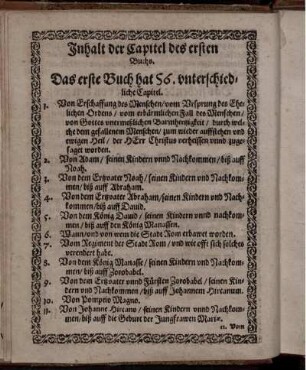 Inhalt der Capitel des ersten
Buchs.
Das erste Buch hat 56. vnterschied-
liche Capitel.
1. Von Erschaffung des Menschen/ vom Vrsprung des Ehe-
lichen Ordens / vom erbärmlichen Fall des Menschen/
von Gottes vnermeßlichen Barmhertzigkeit / durch wel-
che dem gefallenem Menschen/ zum wieder aufflichen vnd
ewigen Heil / der HErr Christus verheissen vnnd zuge-
saget worden.
2. Von Adam/ seinen Kindern vnnd Nachkommen/ biß auff
Noah.
3. Von dem Ertzvater Noah/ seinen Kindern vnd Nachkom-
men/ biß auff Abraham.
4. Von dem Ertzvater Abraham, seinen Kindern vnd Nach-
kommen/ biß auff Dauid.
5. Von dem König Dauid/ seinen Kindern vnnd nachkom-
men/ biß auff den König Manassen.
6. Wann/ vnd von wem die Stadt Rom erbawet worden.
7. Vom Regiment der Stadt Rom/ vnd wie offt sich solches
verendert habe.
8. Von dem König Manasse/ seinen Kindern vnd Nachkom-
men/ biß auff Zorobabel.
9. Von dem Ertzvater vnnd Fürsten Zorobabel/ seinen Kin-
dern vnd Nachkommen/ biß auff Johannem Hircanum.
10. Von Pompeio Magno.
11. Von Johanne Hircano/ seinen Kindern vnnd Nachkom-
men/ biß auff die Geburt der Jungfrawen Mariæ.
12. Vom